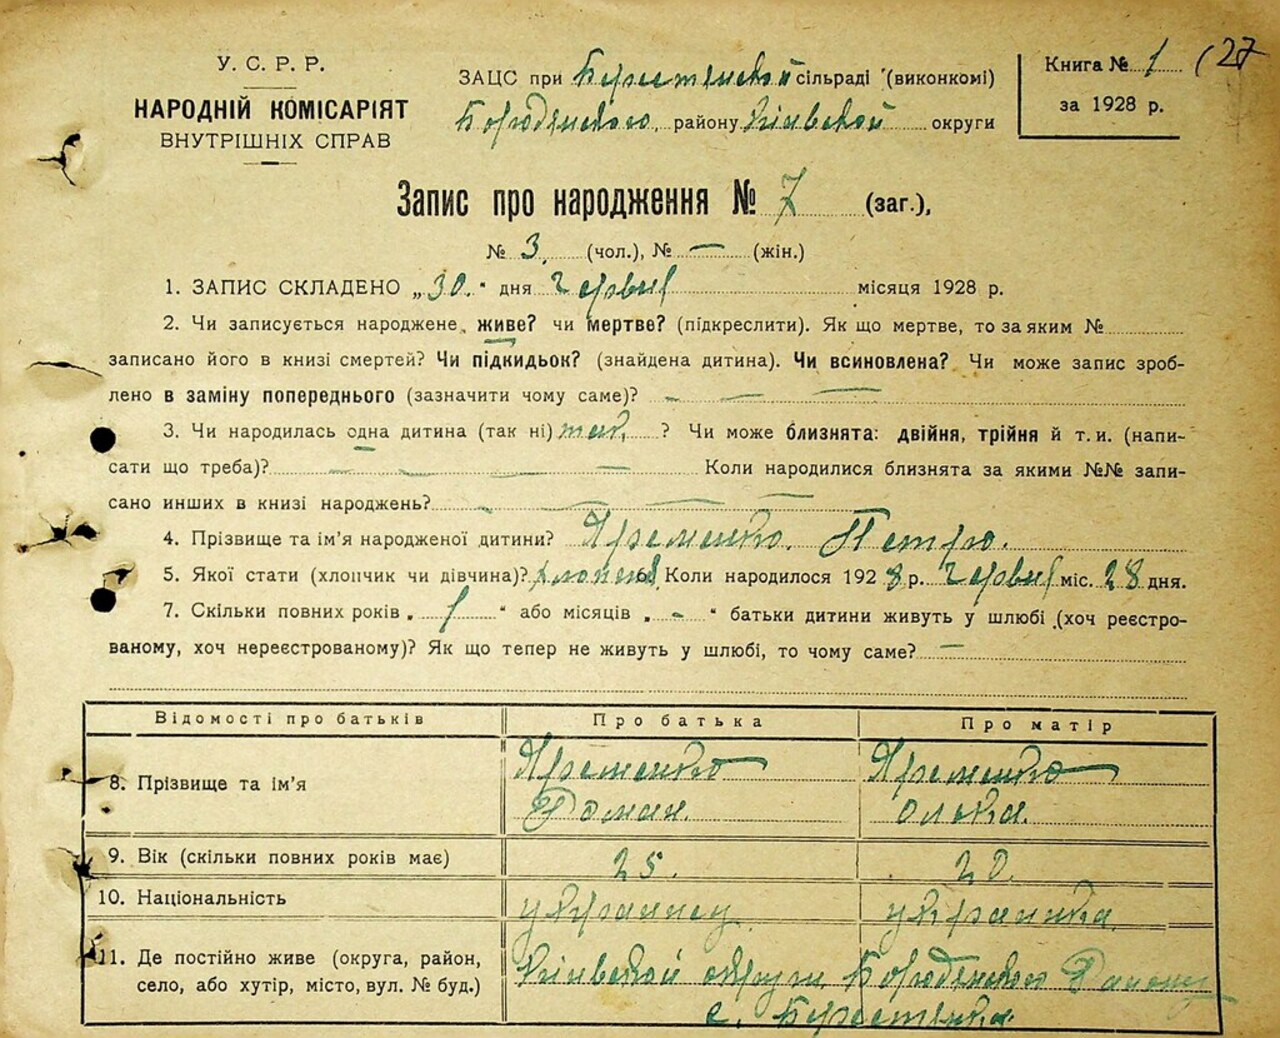 У. С. Р. Р.
НАРОДНІЙ КОМІСАРІЯТ
ВНУТРІШНІХ СПРАВ
ЗАЦС при Берестянской сільраді (виконкомі)
Бородянского району Київской округи
Книга № 1 (27
за 1928 р.
Запис про народження № 7 (заг.),
№ 3. (чол.), № — (жін.)
1. ЗАПИС СКЛАДЕНО „30." дня червня місяця 1928 р.
2. Чи записується народжене живе? чи мертве? (підкреслити). Як що мертве, то за яким №
записано його в книзі смертей? Чи підкидьок? (знайдена дитина). Чи всиновлена? Чи може запис зроб-
лено в заміну попереднього (зазначити чому саме)? — — —
3. Чи народилась одна дитина (так ні) так, ? Чи може близнята: двійня, трійня й т. и. (напи-
сати що треба)? — — — Коли народилися близнята за якими №№ запи-
сано инших в книзі народжень? — — — —
4. Прізвище та ім'я народженої дитини? Яременко. Петро.
5. Якої стати (хлопчик чи дівчина)? 6. Коли народилося 1928 р. червня міс. 28 дня.
7. Скільки повних років „ 1 " або місяців „ - " батьки дитини живуть у шлюбі (хоч реєстро-
ваному, хоч нереєстрованому)? Як що тепер не живуть у шлюбі, то чому саме? —
Відомості про батьків Про батька Про матір
8. Прізвище та ім'я Яременко Роман. Яременко Олька.
9. Вік (скільки повних років має) 25. 20.
10. Національність українец українка
11. Де постійно живе (округа, район,
село, або хутір, місто, вул. № буд.)
Київской округи Бородянского Району
с. Берестянка.